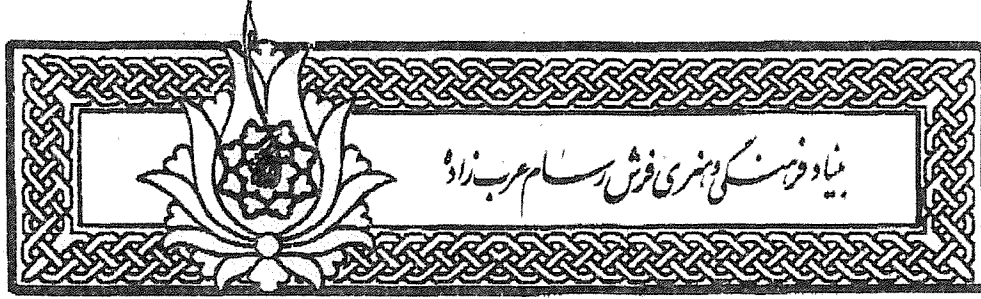 بنیاد فرهنگی و هنری فرش رسام عرب زاده